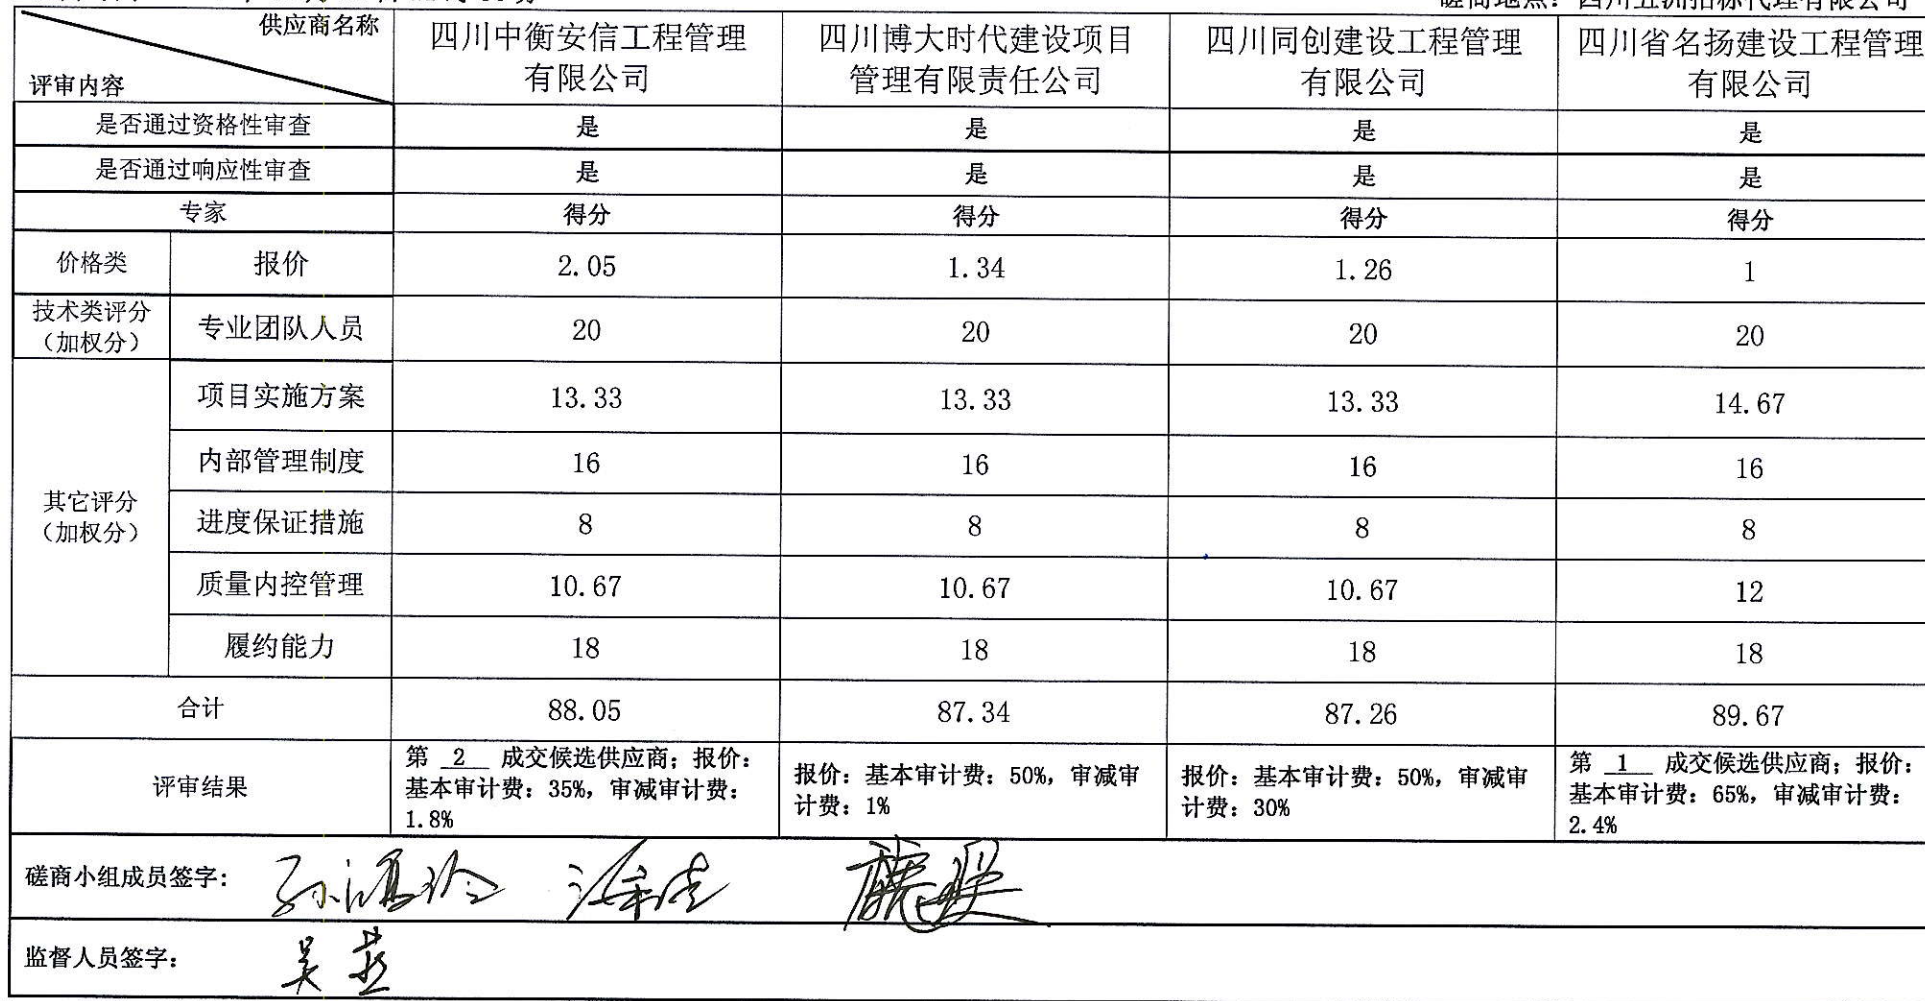 磋商地点：四川五洲招标代理有限公司
供应商名称
评审内容
四川中衡安信工程管理
有限公司
四川博大时代建设项目
管理有限责任公司
四川同创建设工程管理
有限公司
四川省名扬建设工程管理
有限公司
是否通过资格性审查 是 是 是 是
是否通过响应性审查 是 是 是 是
专家 得分 得分 得分 得分
价格类 报价 2.05 1.34 1.26 1
技术类评分
（加权分）
专业团队人员 20 20 20 20
其它评分
（加权分）
项目实施方案 13.33 13.33 13.33 14.67
内部管理制度 16 16 16 16
进度保证措施 8 8 8 8
质量内控管理 10.67 10.67 10.67 12
履约能力 18 18 18 18
合计 88.05 87.34 87.26 89.67
评审结果
第 2 成交候选供应商；报价：
基本审计费：35%，审减审计费：
1.8%
报价：基本审计费：50%，审减审
计费：1%
报价：基本审计费：50%，审减审
计费：30%
第 1 成交候选供应商；报价：
基本审计费：65%，审减审计费：
2.4%
磋商小组成员签字：
监督人员签字：